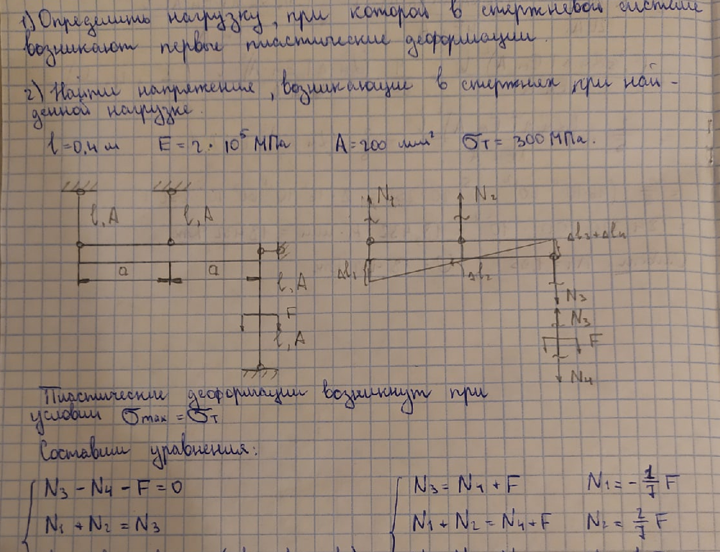 1) Определить нагрузку, при которой в стержневой системе
возникают первые пластические деформации.
2) Найти напряжение, возникающие в стержнях, при най-
денной нагрузке.
l=0,4 м E = 2·10⁵ МПа A=200 мм² σт = 300 МПа.
l, A l, A
N₁ N₂
a a
l, A
F
l, A
Δl₁ Δl₂ Δl₃+Δl₄
N₃
N₃
F
N₄
Пластические деформации возникнут при
условии σmax = σт
Составим уравнения:
N₃ - N₄ - F = 0
N₁ + N₂ = N₃
N₃ = N₄ + F
N₁ + N₂ = N₄ + F
N₁ = -1/7 F
N₂ = 2/7 F